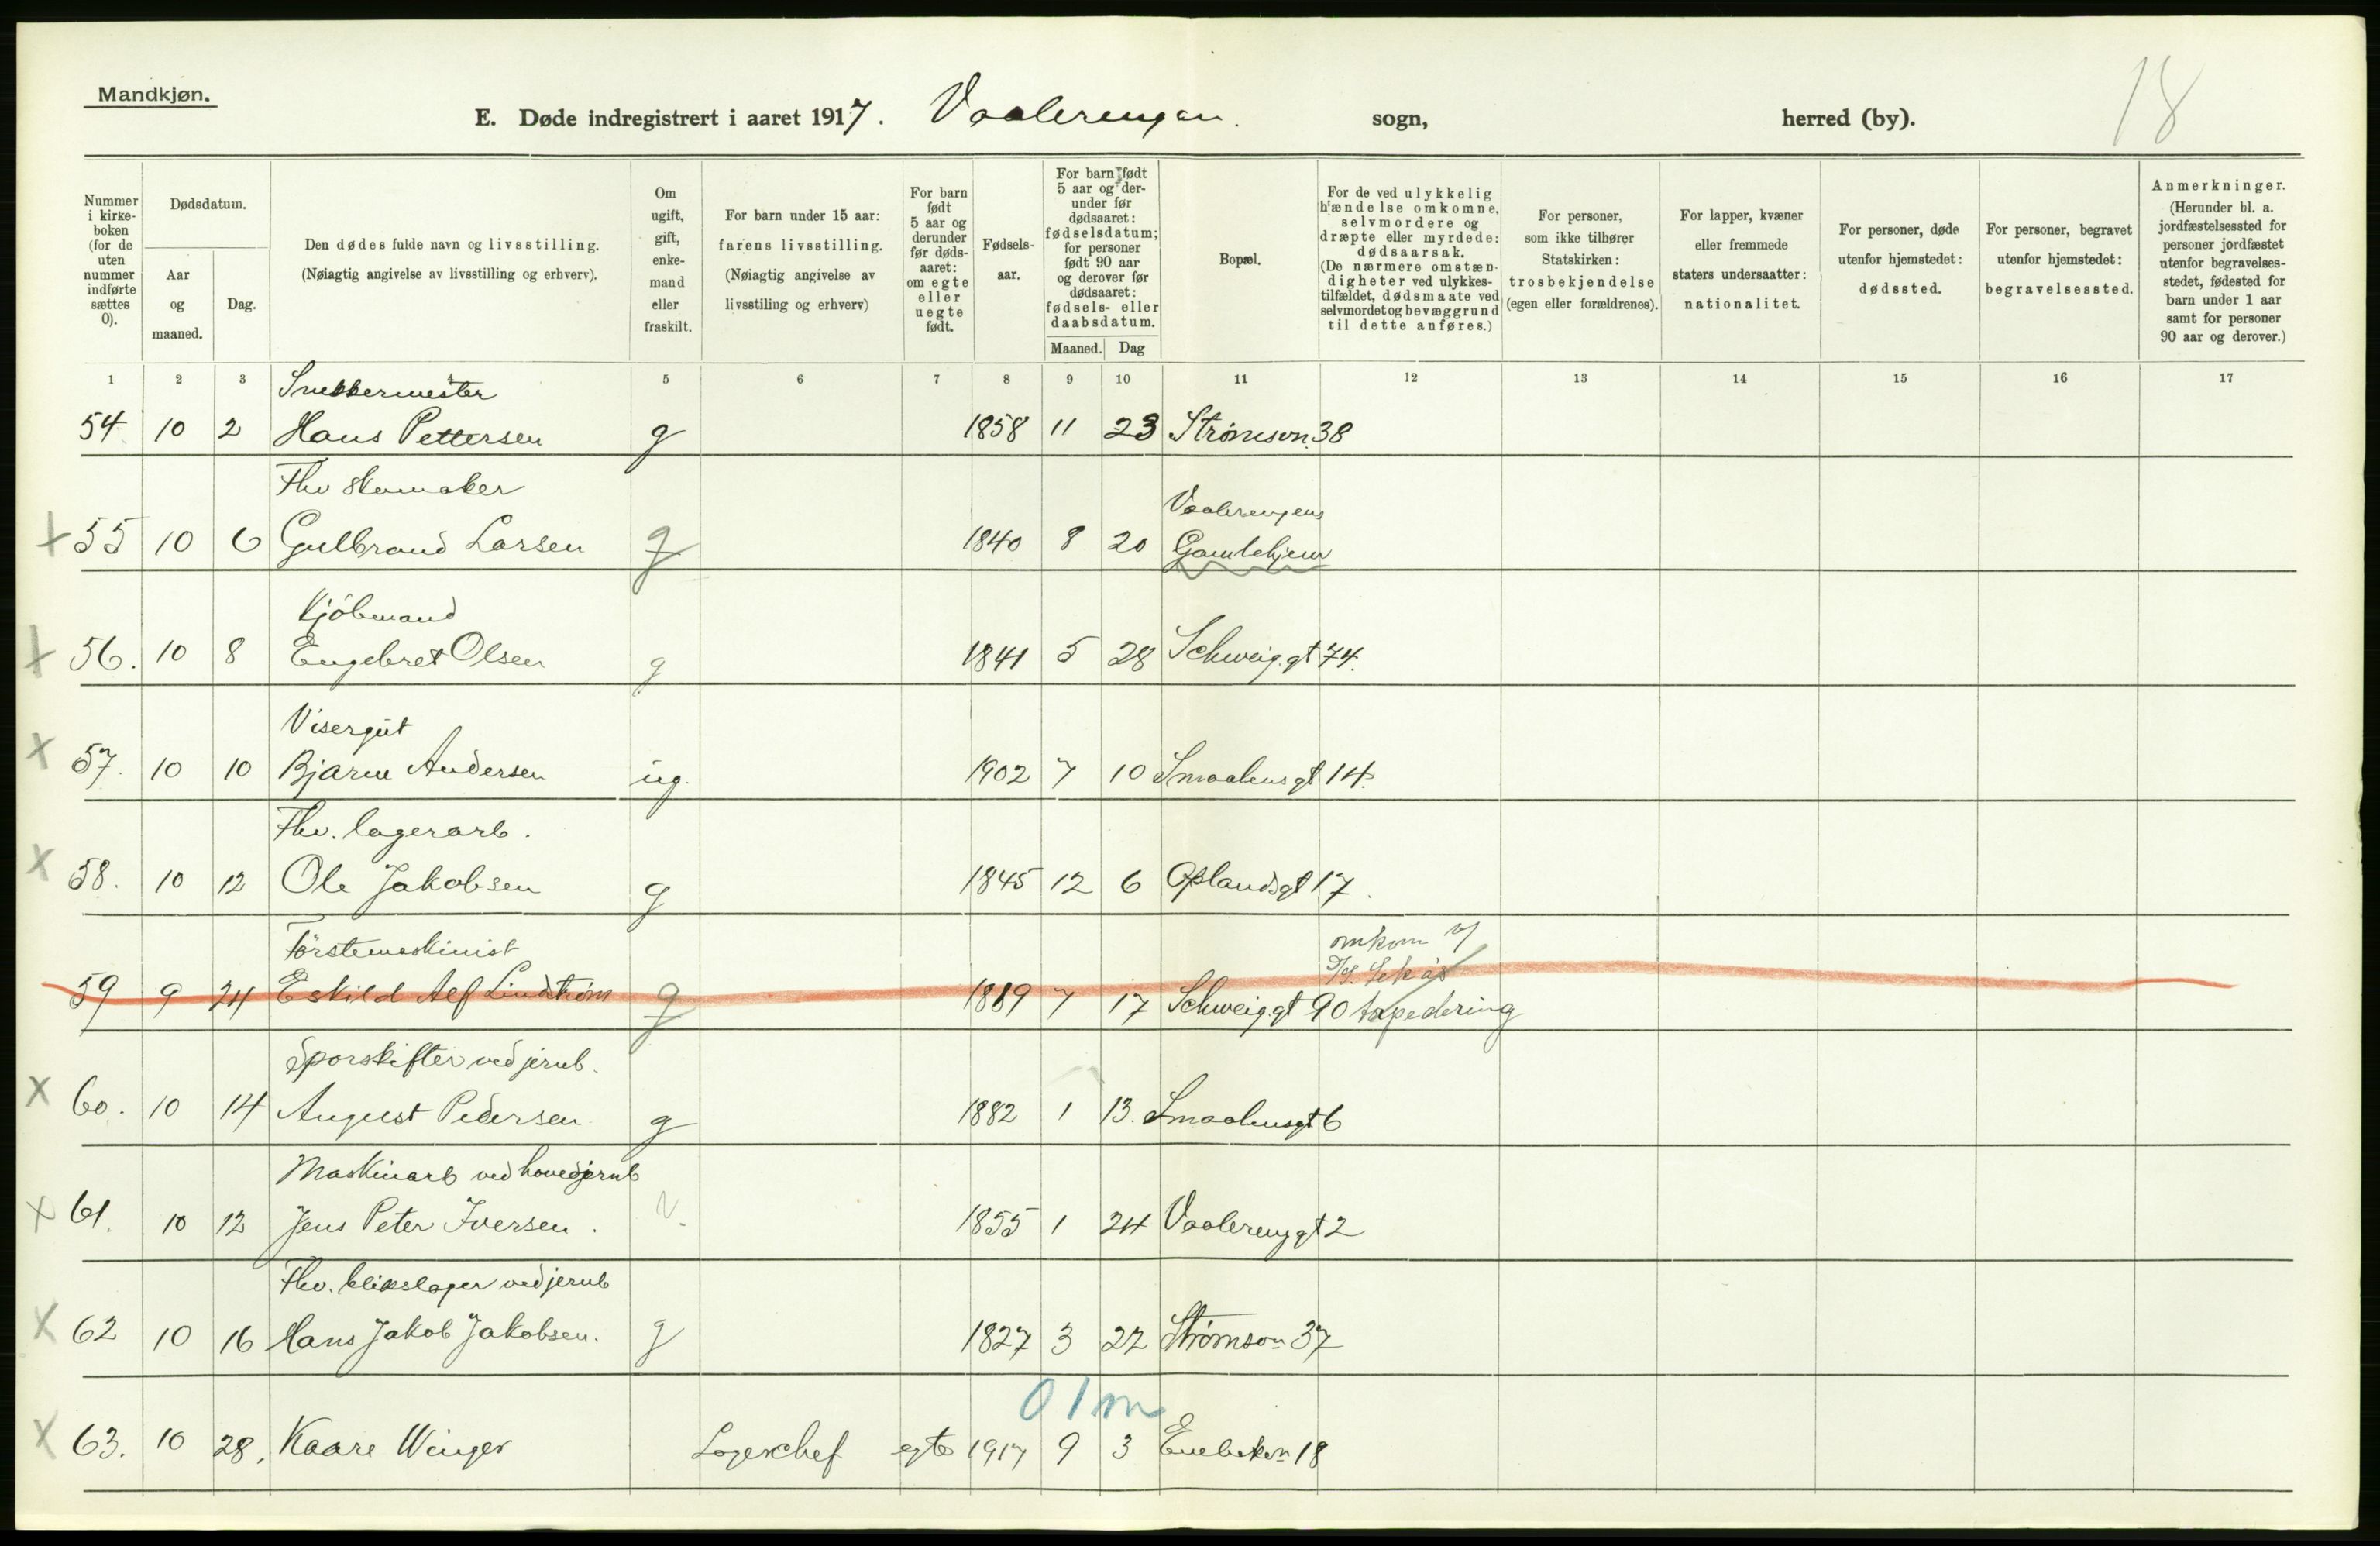 Mandkjøn.
E. Døde indregistrert i aaret 1917. Vaalerengen. sogn, herred (by).
18
Nummer i kirkeboken (for de uten nummer indførte sættes 0).
Dødsdatum.
Aar og maaned.
Dag.
Den dødes fulde navn og livsstilling.
(Nøiagtig angivelse av livsstilling og erhverv).
Om ugift, gift, enkemand eller fraskilt.
For barn under 15 aar:
farens livsstilling.
(Nøiagtig angivelse av livsstiling og erhverv)
For barn født 5 aar og derunder før dødsaaret: om egte eller uegte født.
Fødselsaar.
For barn født 5 aar og derunder før dødsaaret: fødselsdatum; for personer født 90 aar og derover før dødsaaret: fødsels- eller daabsdatum.
Maaned. Dag
Bopæl.
For de ved ulykkelig hændelse omkomne, selvmordere og dræpte eller myrdede: dødsaarsak.
(De nærmere omstændigheter ved ulykkestilfældet, dødsmaate ved selvmordet og bevæggrund til dette anføres.)
For personer, som ikke tilhører Statskirken: trosbekjendelse (egen eller forældrenes).
For lapper, kvæner eller fremmede staters undersaatter: nationalitet.
For personer, døde utenfor hjemstedet: dødssted.
For personer, begravet utenfor hjemstedet: begravelsessted.
Anmerkninger.
(Herunder bl. a. jordfæstelsessted for personer jordfæstet utenfor begravelsesstedet, fødested for barn under 1 aar samt for personer 90 aar og derover.)
1 2 3 4 5 6 7 8 9 10 11 12 13 14 15 16 17
Snekkermester
54 10 2 Hans Pettersen g 1858 11 23 Strømsvn. 38
Fhv skomaker
Vaalerengens
x 55 10 6 Gulbrand Larsen g 1840 8 20 Gamlehjem
Kjöbmand
x 56. 10 8 Engebret Olsen g 1841 5 28 Schweig.gt 74.
Visergut
x 57. 10 10 Bjarne Andersen ug. 1902 7 10 Smaalensgt 14.
Fhv. lagerarb.
x 58. 10 12 Ole Jakobsen g 1845 12 6 Oplandsgt 17.
Förstemaskinist
omkom v/
59 9 24 Eskild Alf Lindström g 1889 7 17 Schweig.gt 90 torpedering
Sporskifter ved jernb.
x 60. 10 14 August Pedersen g 1882 1 13. Smaalensgt 6
Maskinarb ved hovedjernb
x 61. 10 12 Jens Peter Iversen. 1855 1 24 Vaalerenggt 2
Fhv. blikslager ved jernb
x 62 10 16 Hans Jakob Jakobsen. g 1827 3 22 Strømsvn 37
0 1 m
x 63. 10 28. Kaare Winger Lagerchef egte 1917 9 3 Enebakvn 18